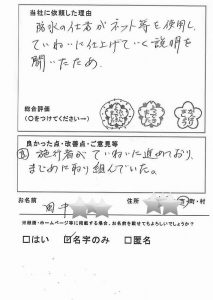 当社に依頼した理由
防水の仕方がネット等を使用し
ていねいに仕上げていく説明を
聞いたため。
総合評価
(〇をつけてください→)
良かった点・改善点・ご意見等
良 施行者がていねいに進めており、
まじめに取り組んでいた。
お名前
田中
住所
市・町・村
※館腰・ホームページ等に掲載する場合、お名前を載せてもよろしいでしょうか?
□はい ☑名字のみ □匿名